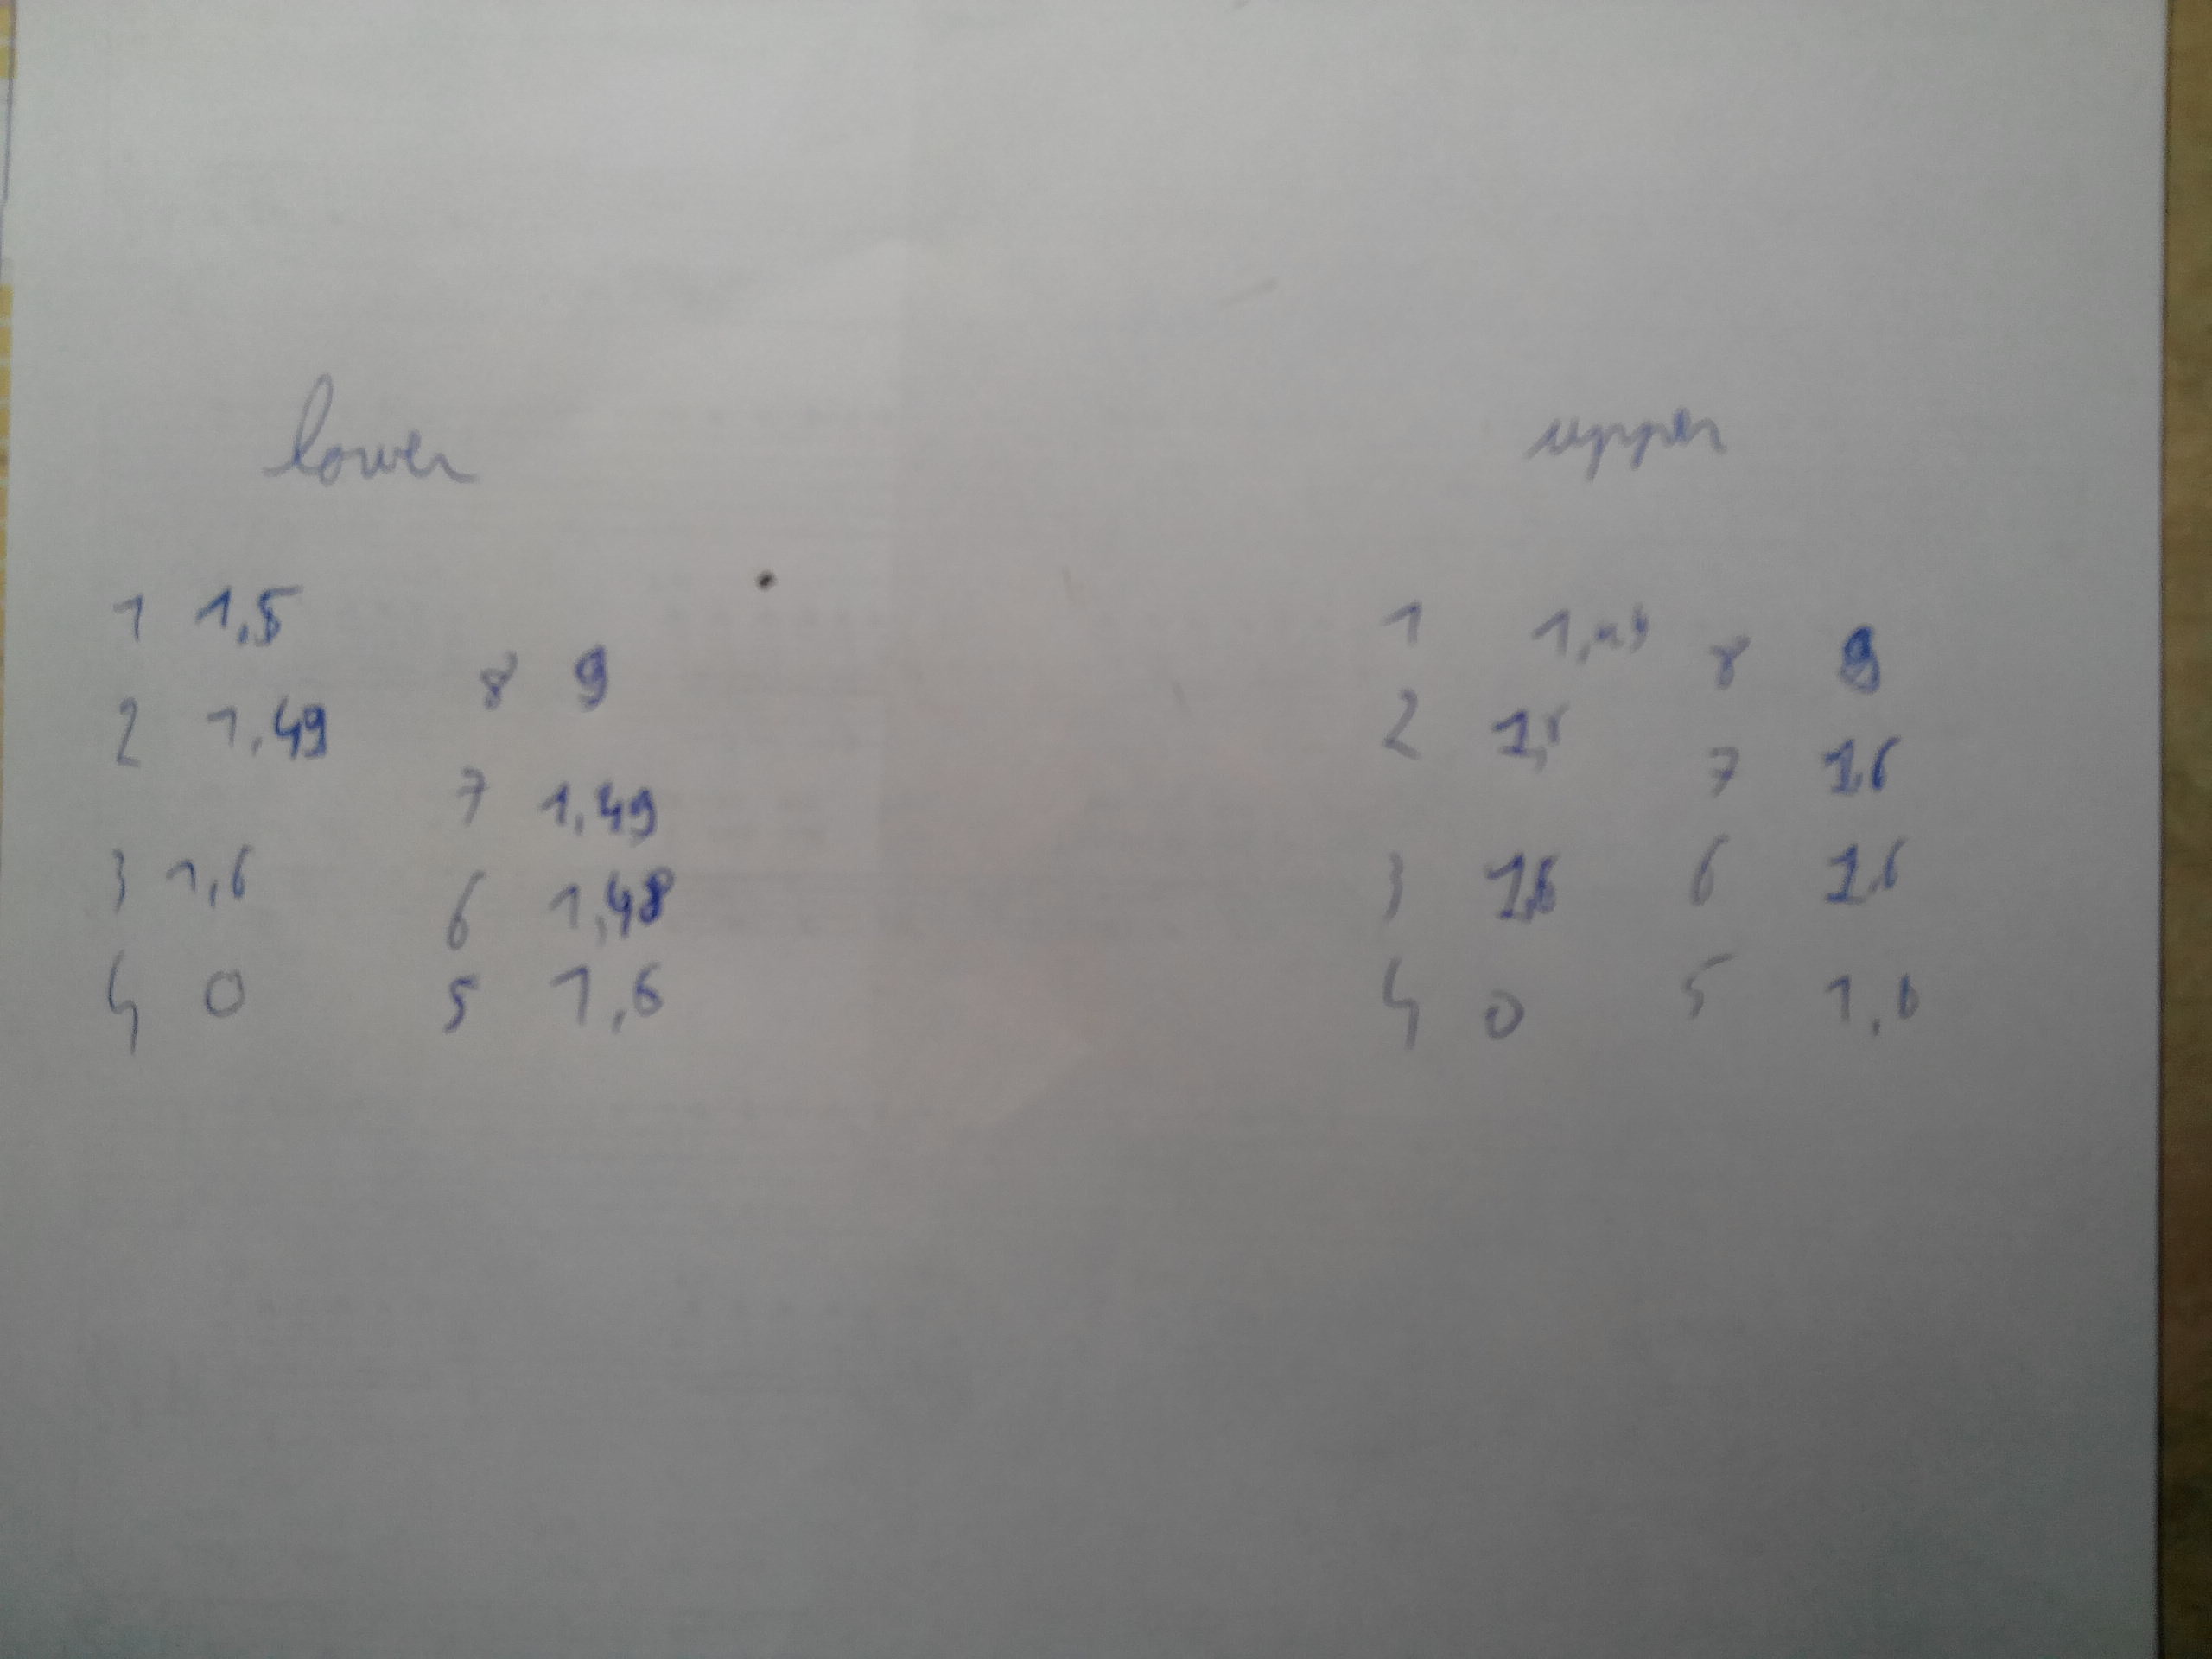 lower
1 1,5
2 1,49
3 1,6
4 0
8 9
7 1,49
6 1,48
5 1,6
upper
1
2
3 1,6
4 0
8 9
7 1,6
6 1,6
5 1,6